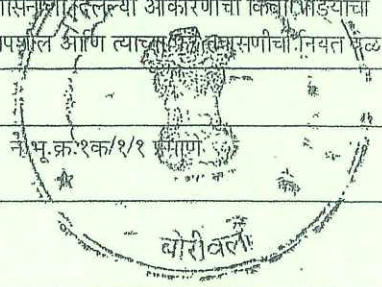 दिलेल्या आकारणीची किंवा भाड्याची
तपशील आणि त्याच्या तपासणीची नियत वेळ
न.भू.क्र.१क/१/१ प्रमाणे
बोरीवली